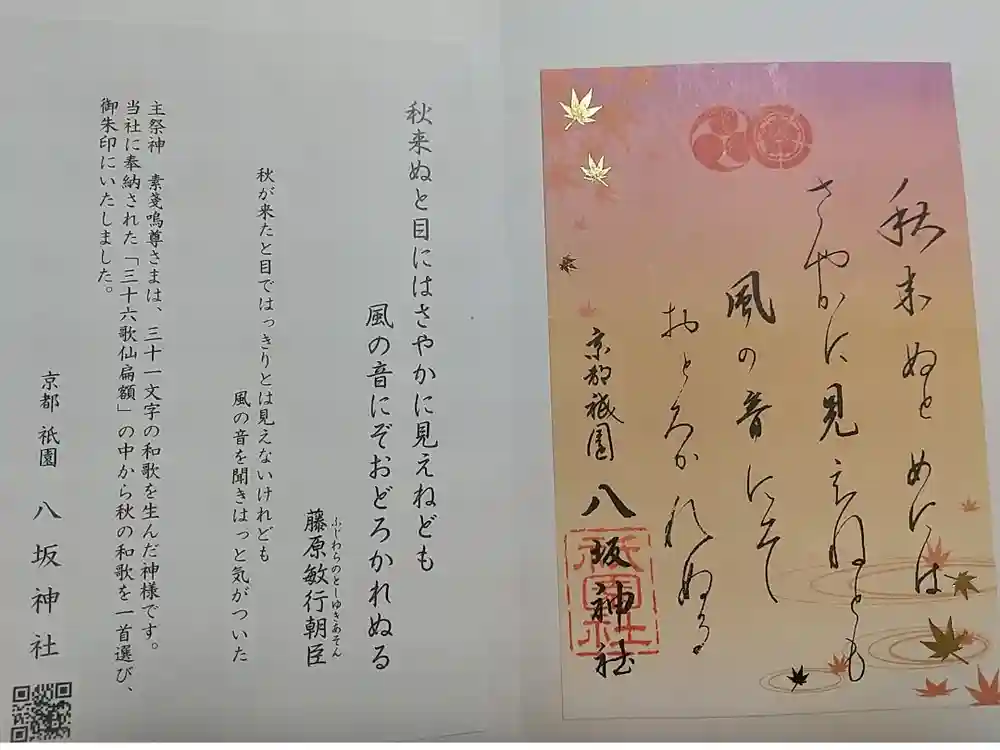 秋来ぬと目にはさやかに見えねども
風の音にぞおどろかれぬる
ふじわらのとしゆきあそん
藤原敏行朝臣
秋が来たと目ではっきりとは見えないけれども
風の音を聞きはっと気がついた
主祭神 素戔嗚尊さまは、三十一文字の和歌を生んだ神様です。
当社に奉納された「三十六歌仙扁額」の中から秋の和歌を一首選び、
御朱印にいたしました。
京都 祇園 八坂神社
秋来ぬとめには
さやかに見えねとも
風の音にそ
おとろかれぬる
京都祇園 八坂神社
祇園社